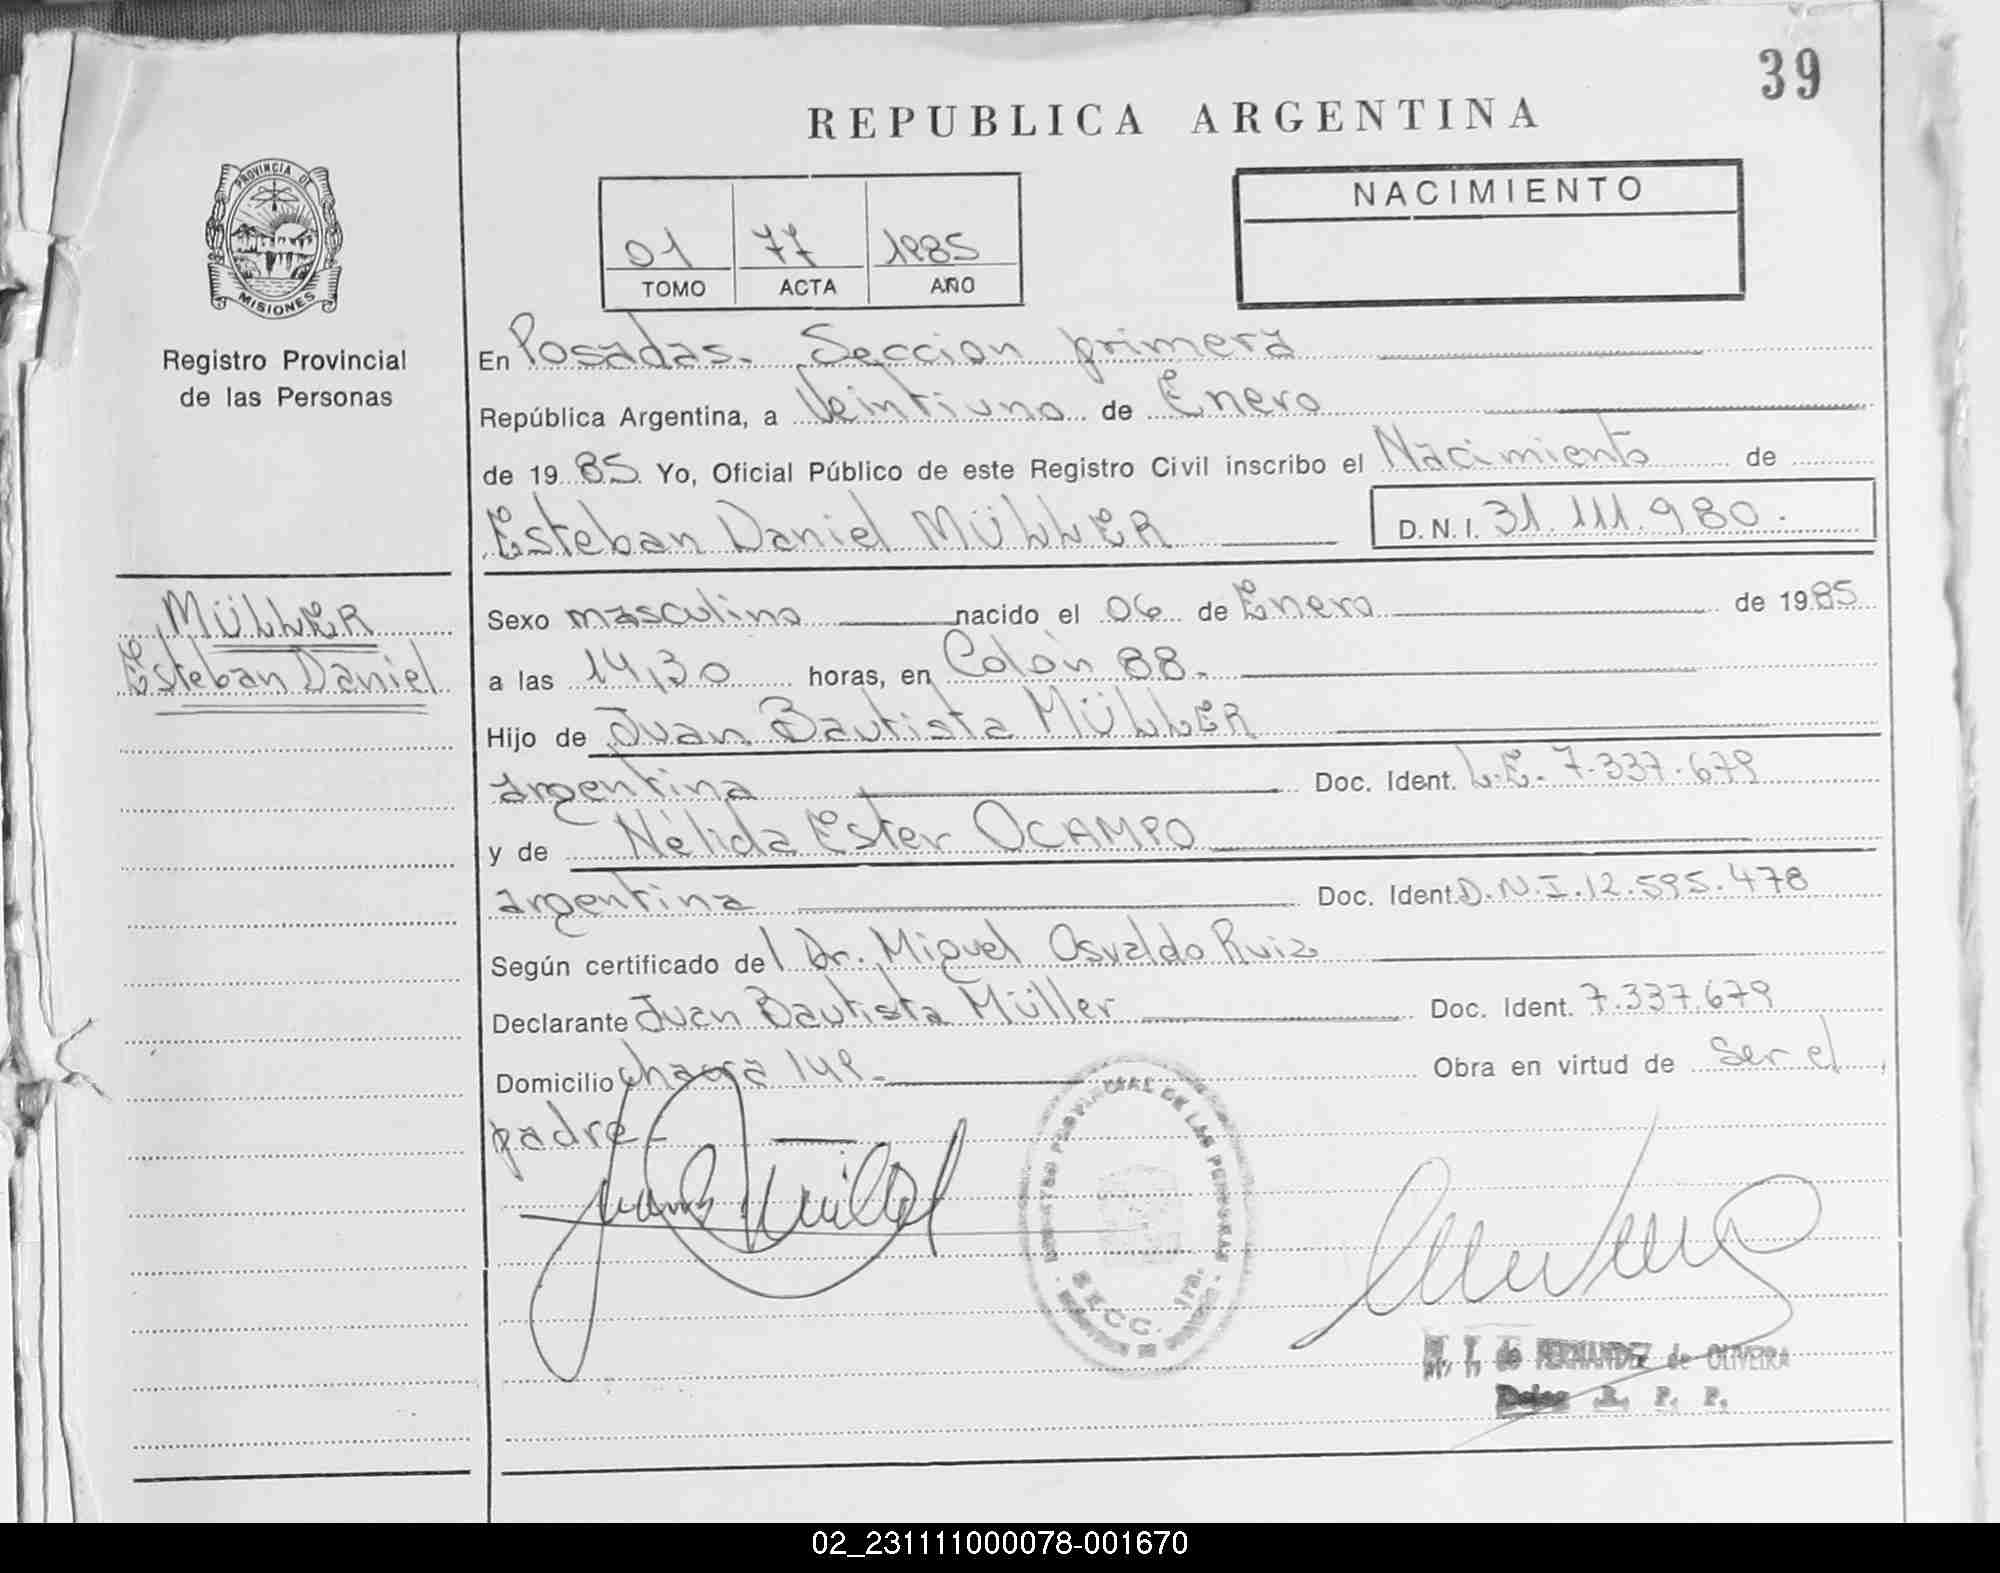 39
REPUBLICA ARGENTINA
PROVINCIA DE
MISIONES
Registro Provincial
de las Personas
01 77 1985
TOMO ACTA AÑO
NACIMIENTO
En Posadas. Sección primera
República Argentina, a Veintiuno de Enero
de 19 85 Yo, Oficial Público de este Registro Civil inscribo el Nacimiento de
Esteban Daniel MÜLLER D.N.I. 31.111.980.
MÜLLER
Esteban Daniel
Sexo masculino nacido el 06 de Enero de 1985
a las 14,30 horas, en Colón 88.
Hijo de Juan Bautista MÜLLER
argentina Doc. Ident. L.E. 7.337.679
y de Nélida Ester OCAMPO
argentina Doc. Ident. D.N.I. 12.595.478
Según certificado del Dr. Miguel Osvaldo Ruiz
Declarante Juan Bautista Müller Doc. Ident. 7.337.679
Domicilio chacra 149- Obra en virtud de Ser el
padre-
REGISTRO PROVINCIAL DE LAS PERSONAS
SECC. 1ra.
M. T. de FERNANDEZ de OLIVEIRA
Deleg R. P. P.
02_231111000078-001670